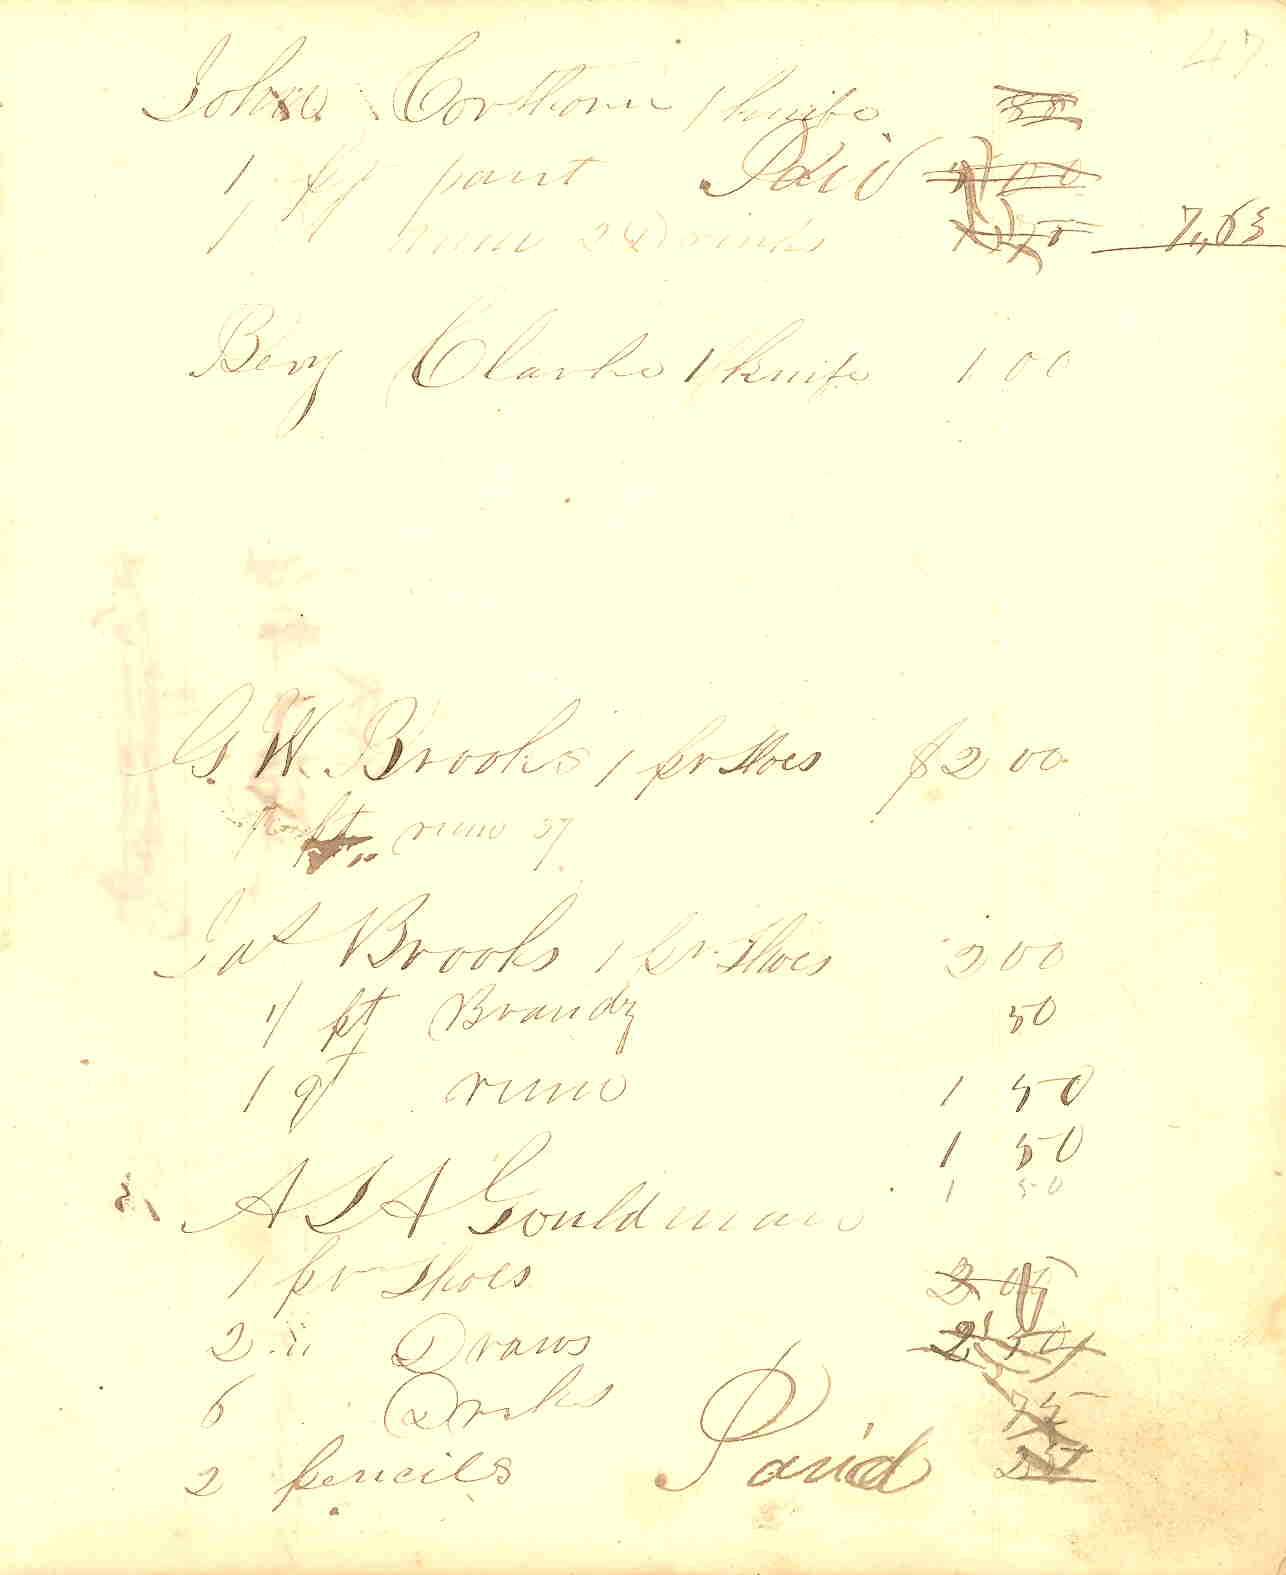 47
John Corthorn 1 knife 55
1 pt pant Paid 5 00
1 " rum 2 Drinks 1 75 7,,63
Beny Clarke 1 knife 1 00
G. W. Brooks 1 pr Shoes $2 00
1 pt,, rum 37
Jas Brooks 1 pr Shoes 2 00
1 pt Brandy 50
1 qt rum 1 50
1 50
1 50
A L A Gouldman
1 pr Shoes 2 00
2 " Draws 2 50
6 Drks 75
2 pencils Paid 25